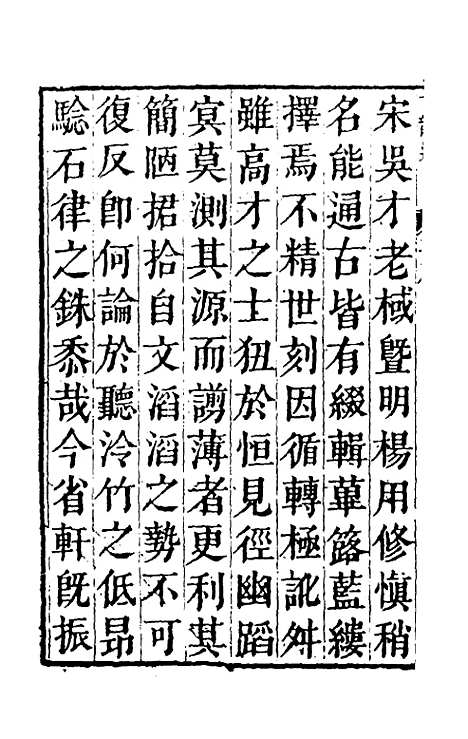 宋吳才老棫曁明楊用修愼稍
名能通古皆有綴輯蓽簬藍縷
擇焉不精世刻因循轉極訛舛
雖高才之士狃於恒見徑幽蹈
㝠莫測其源而謭薄者更利其
簡陋捃拾自文滔滔之勢不可
復反卽何論於聽泠竹之低昻
驗石律之銖黍哉今省軒旣振